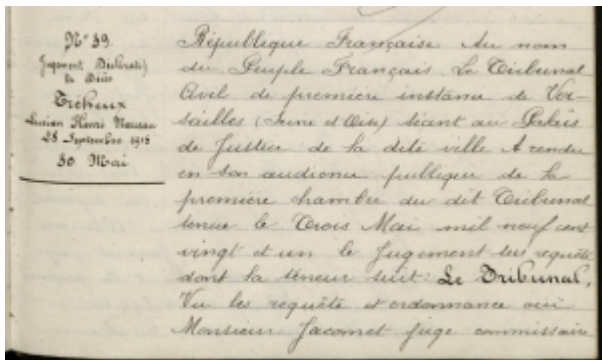 N° 39.
Jugement Déclaratif
de Décès
Tréheux
Lucien Henri Marceau
28 Septembre 1915
30 Mai
République Française Au nom
du Peuple Français. Le Tribunal
Civil de première instance de Ver-
sailles (Seine et Oise) séant au Palais
de Justice de la dite ville A rendu
en son audience publique de la
première chambre du dit Tribunal
tenue le Trois Mai mil neuf cent
vingt et un le Jugement sur requête
dont la teneur suit: Le Tribunal,
Vu les requête et ordonnance oui
Monsieur Jacomet juge commissaire